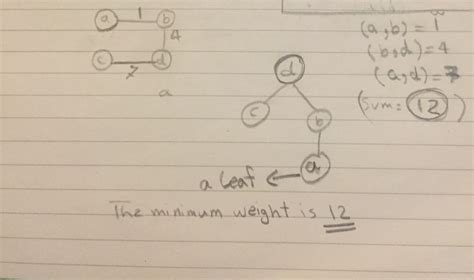 a 1 b
(a,b)=1
4
(b,d)=4
c 7 d
(a,d)=7
d
a
(Sum= 12)
c
b
a
a leaf ←
The minimum weight is 12